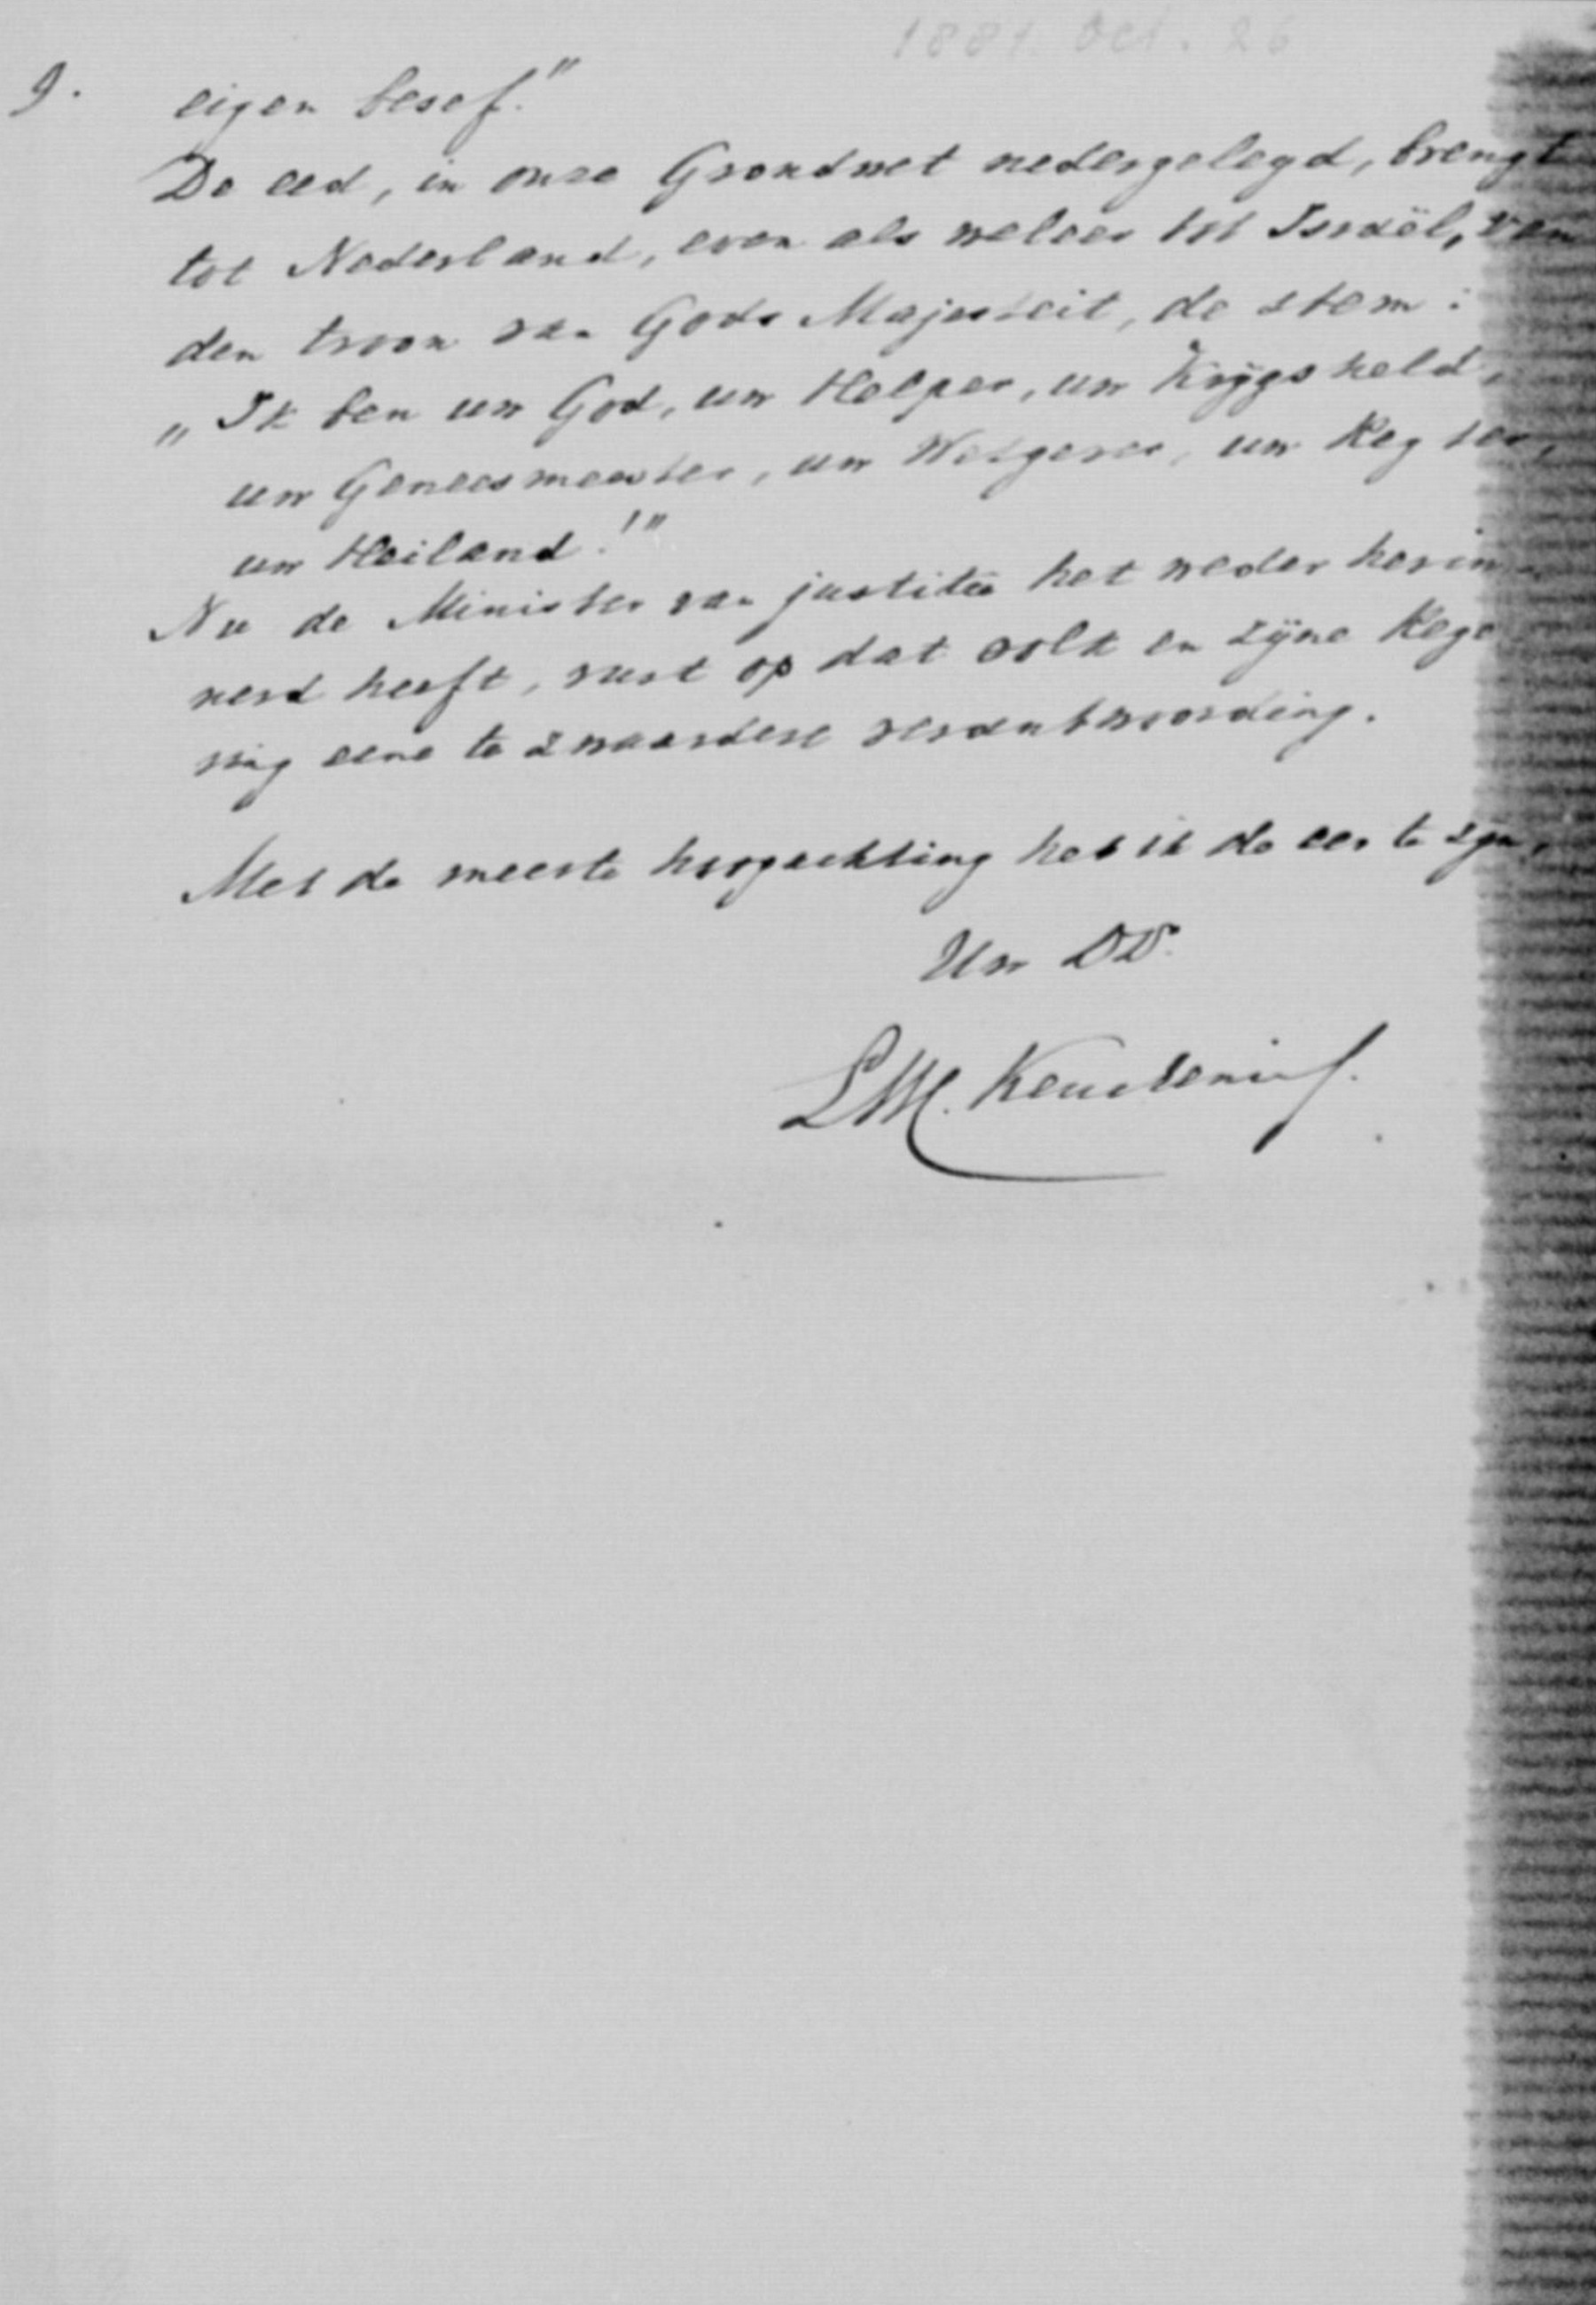 1881. Oct. 26
9. eigen besef."
De eed, in onze Grondwet nedergelegd, brengt
tot Nederland, even als weleer tot Israël, van
den troon van Gods Majesteit, de stem:
„Ik ben uw God, uw Helper, uw Krijgsheld,
uw Geneesmeester, uw Wetgever, uw Regter,
uw Heiland!"
Nu de Minister van justitie het weder herin-
nerd heeft, rust op dat volk en zijne Rege
ring eene te zwaardere verantwoording.
Met de meeste hoogachting heb ik de eer te zijn,
Uw DD.
LWC. Keuchenius.